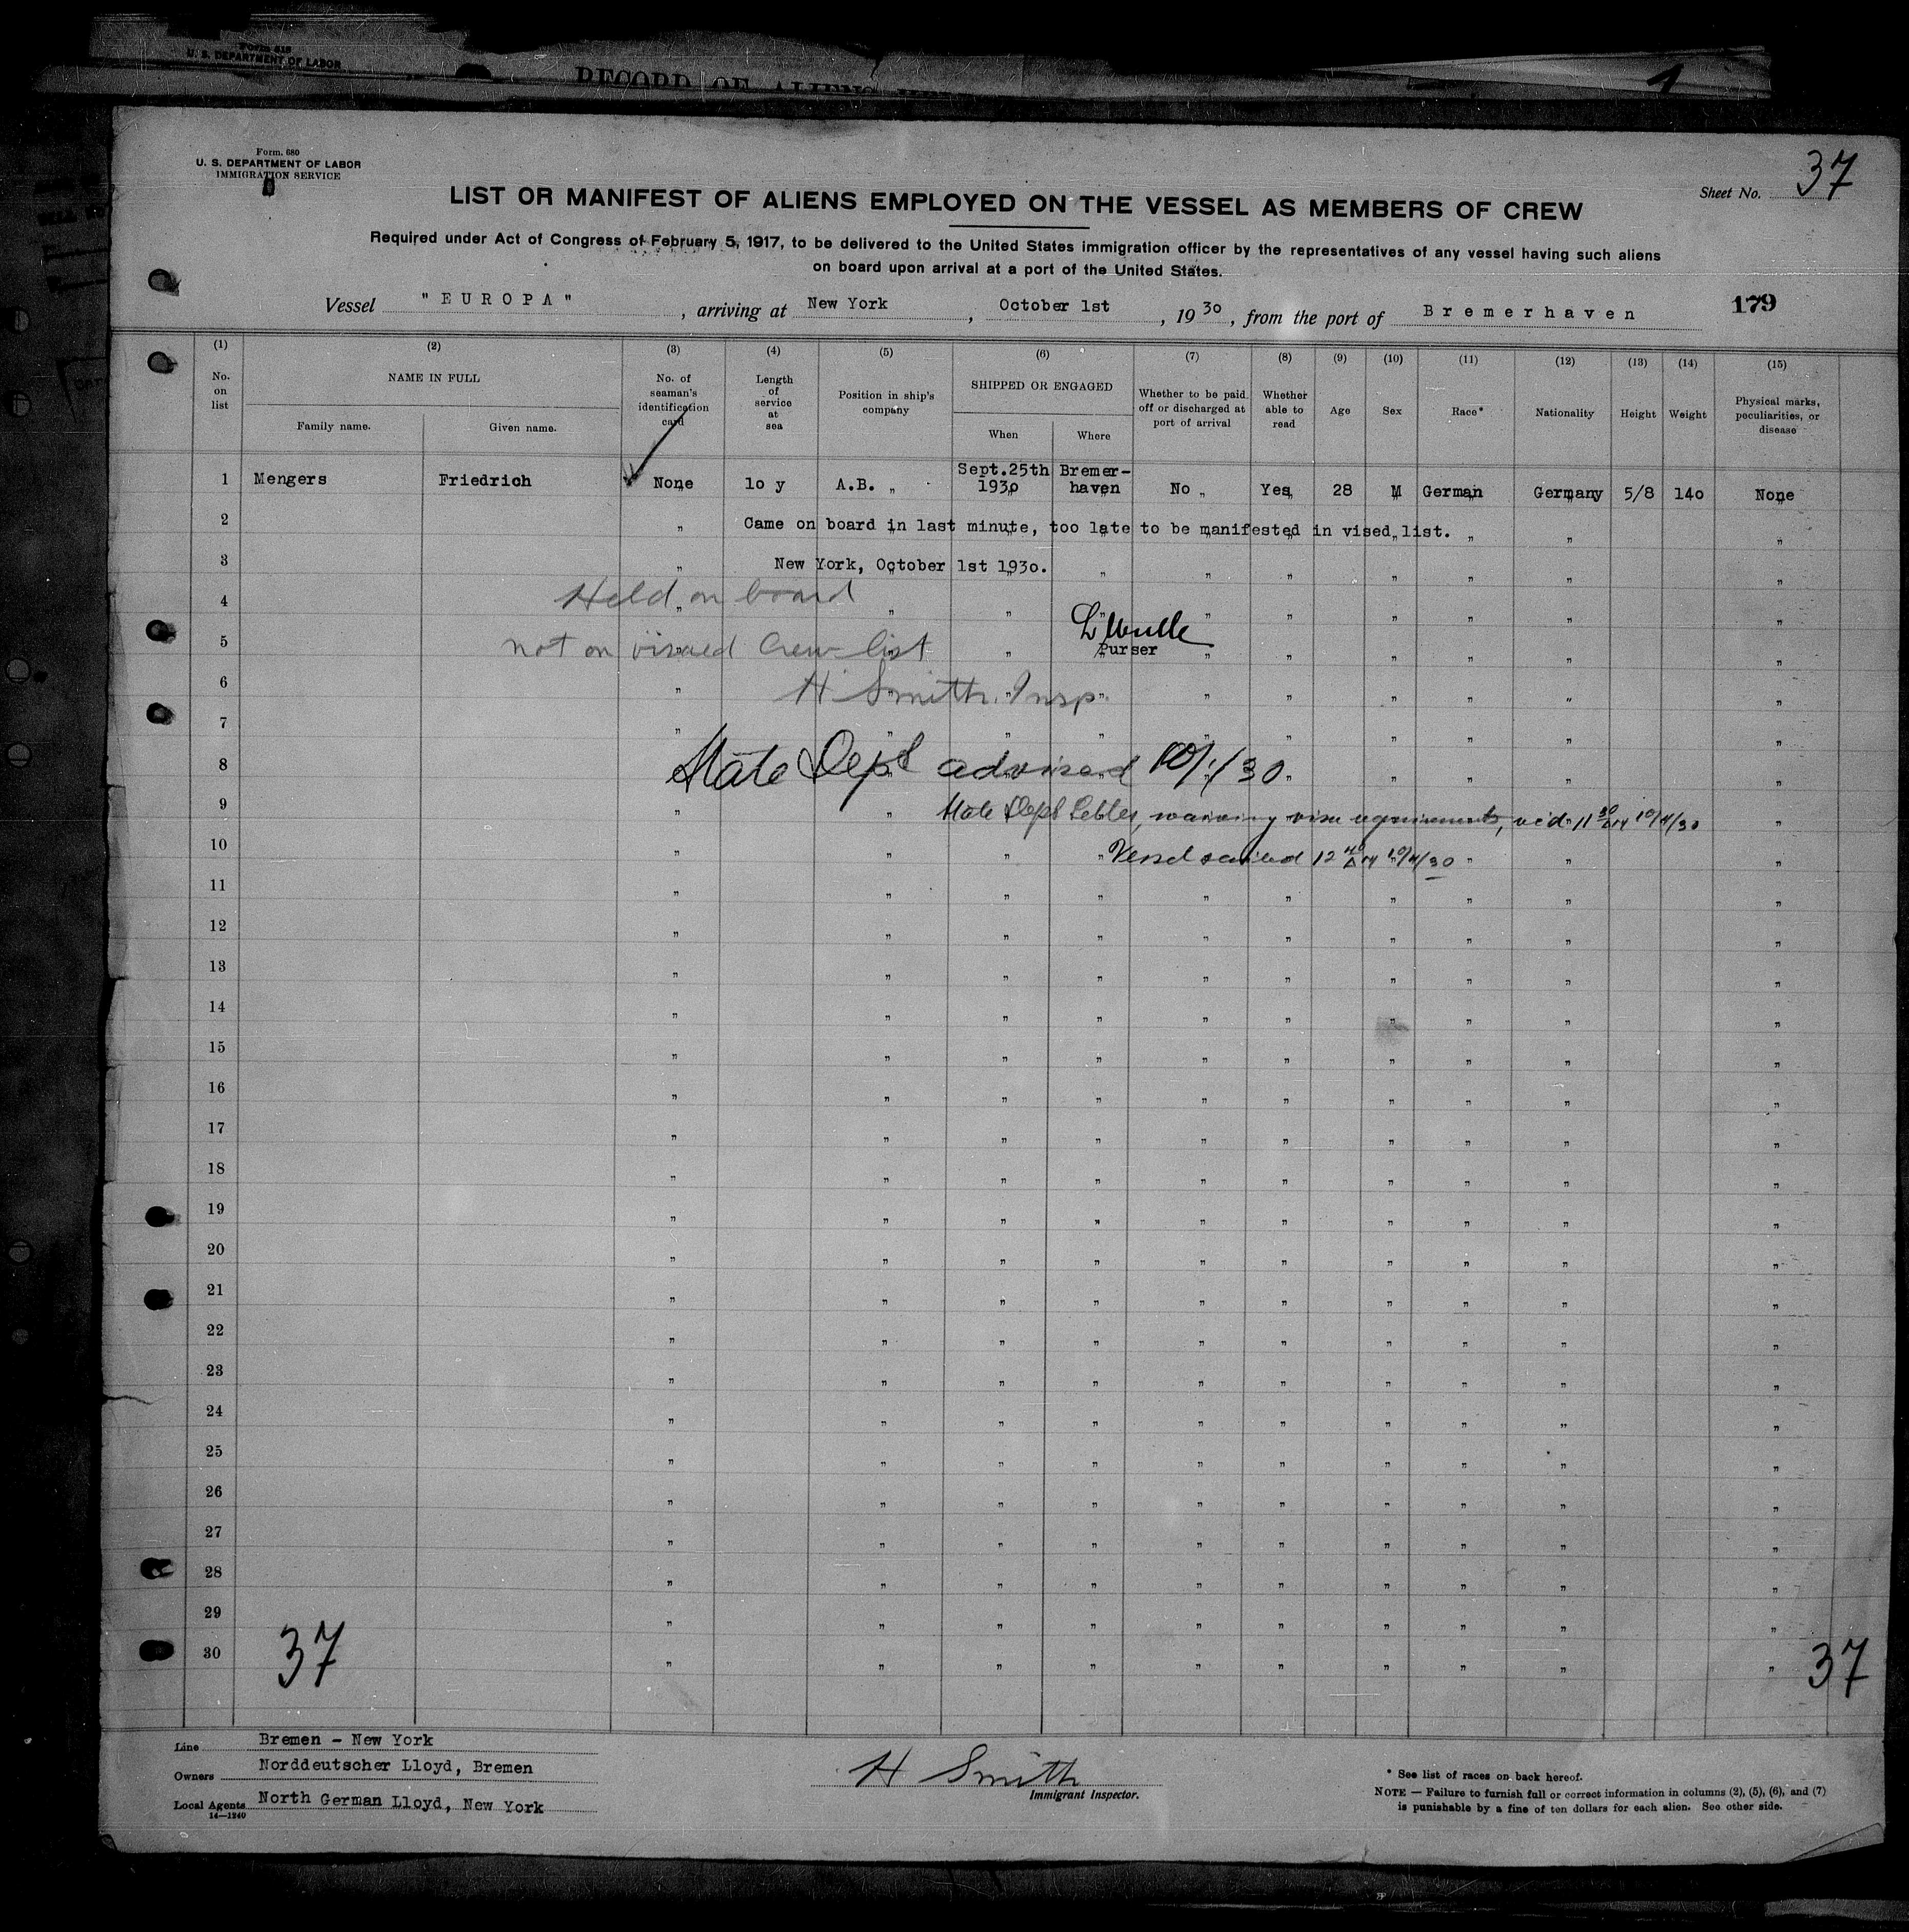 Form 618
U. S. DEPARTMENT OF LABOR
RECORD OF ALIENS
1
Form. 680
U. S. DEPARTMENT OF LABOR
IMMIGRATION SERVICE
Sheet No. 37
LIST OR MANIFEST OF ALIENS EMPLOYED ON THE VESSEL AS MEMBERS OF CREW
Required under Act of Congress of February 5, 1917, to be delivered to the United States immigration officer by the representatives of any vessel having such aliens
on board upon arrival at a port of the United States.
Vessel "EUROPA", arriving at New York, October 1st, 1930, from the port of Bremerhaven
179
(1) (2) (3) (4) (5) (6) (7) (8) (9) (10) (11) (12) (13) (14) (15)
No. on list
NAME IN FULL
Family name. Given name.
No. of seaman's identification card
Length of service at sea
Position in ship's company
SHIPPED OR ENGAGED
When Where
Whether to be paid off or discharged at port of arrival
Whether able to read
Age
Sex
Race*
Nationality
Height
Weight
Physical marks, peculiarities, or disease
1 Mengers Friedrich None 10 y A.B. Sept.25th 1930 Bremer-haven No Yes 28 M German Germany 5/8 140 None
2 Came on board in last minute, too late to be manifested in vised list.
3 New York, October 1st 1930.
4 Held on board
5 not on visaed Crew list
Purser
6 H Smith. Insp.
7
8 State Dept advised 10/1/30
9 State Dept waiving visa requirements, rec'd 11 30 AM 10/4/30
10 Vessel sailed 12 40 AM 10/4/30
11
12
13
14
15
16
17
18
19
20
21
22
23
24
25
26
27
28
29
30
37
37
Line Bremen - New York
Owners Norddeutscher Lloyd, Bremen
Local Agents North German Lloyd, New York
14—1240
H Smith
Immigrant Inspector.
* See list of races on back hereof.
NOTE — Failure to furnish full or correct information in columns (2), (5), (6), and (7)
is punishable by a fine of ten dollars for each alien. See other side.